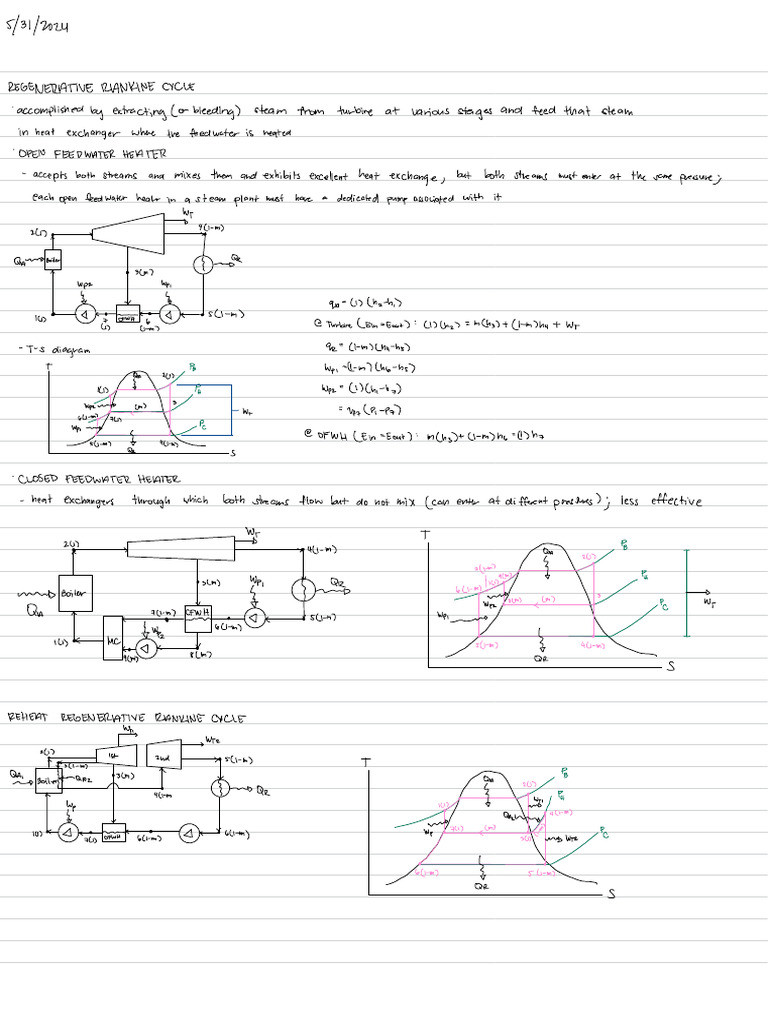 5/31/2024
REGENERATIVE RANKINE CYCLE
· accomplished by extracting (or bleeding) steam from turbine at various stages and feed that steam
in heat exchanger where the feedwater is heated
· OPEN FEEDWATER HEATER
- accepts both streams and mixes them and exhibits excellent heat exchange, but both streams must enter at the same pressure;
each open feedwater heater in a steam plant must have a dedicated pump associated with it
WT
2(1)
4(1-m)
QA
Boiler
QR
3(m)
WP2
WP1
1(1)
7
(1)
OFWH
6
(1-m)
5(1-m)
qA = (1)(h2-h1)
@ Turbine (Ein=Eout): (1)(h2) = m(h3) + (1-m)h4 + WT
qR = (1-m)(h4-h5)
WP1 = (1-m)(h6-h5)
WP2 = (1)(h1-h7)
= v7(P1-P7)
@ OFWH (Ein=Eout): m(h3)+(1-m)h6 = (1)h7
- T-s diagram
T
QA
2(1)
PB
1(1)
PA
WP2
(m)
3
6(1-m)
7(1)
WT
WP1
PC
5(1-m)
QR
4(1-m)
S
· CLOSED FEEDWATER HEATER
- heat exchangers through which both streams flow but do not mix (can enter at different pressures); less effective
WT
2(1)
4(1-m)
Boiler
QA
3(m)
WP1
QR
7(1-m)
CFWH
6(1-m)
5(1-m)
1(1)
MC
WP2
9(m)
8(m)
T
QA
2(1)
PB
7(1-m)
1(1)
9(m)
6(1-m)
PA
WP2
8(m)
(m)
3
WP1
PC
WT
QR
4(1-m)
S
REHEAT REGENERATIVE RANKINE CYCLE
WT2
2(1)
1st
2nd
5(1-m)
3(1-m)
QA1
Boiler
QA2
3(m)
4(1-m)
QR
WP
1(1)
7(1)
OFWH
6(1-m)
6(1-m)
T
QA
2(1)
PB
1(1)
WT1
PA
4(1-m)
WP
7(1)
(m)
3(1)
WT2
PC
6(1-m)
QR
5(1-m)
S